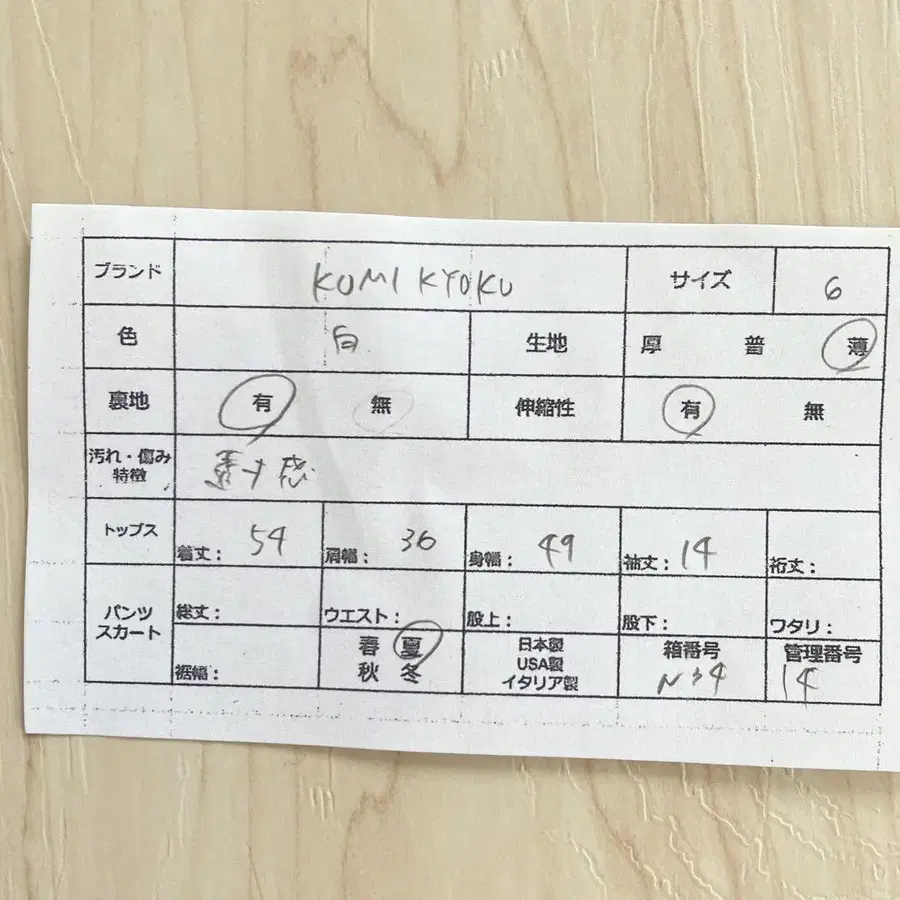 ブランド KUMIKYOKU サイズ 6
色 白 生地 厚 普 薄
裏地 有 無 伸縮性 有 無
汚れ・傷み
特徴
トップス 着丈: 54 肩幅: 36 身幅: 49 袖丈: 14 裄丈:
パンツ
スカート
総丈: ウエスト: 股上: 股下: ワタリ:
裾幅:
春 夏
秋 冬
日本製
USA製
イタリア製
箱番号
N34
管理番号
14